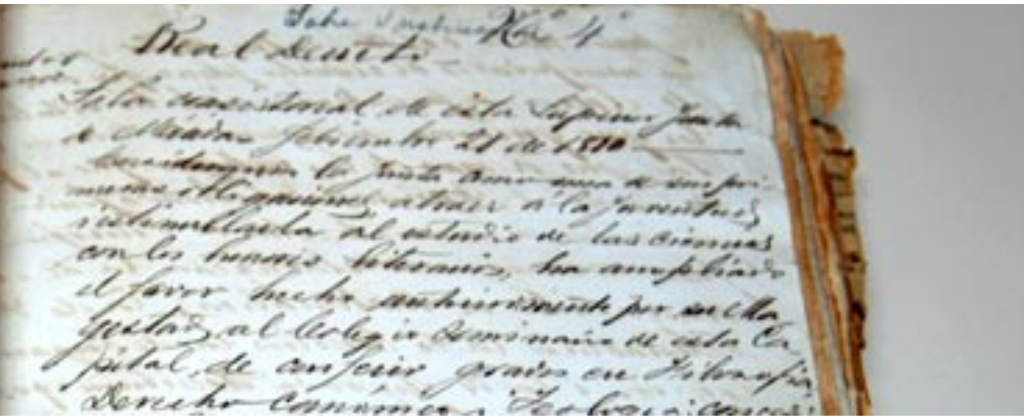 Nº 4
Real Decreto.
Sala consistorial de esta Superior Junta
de Mérida Septiembre 21 de 1810
la Junta como una de sus pri-
meras obligaciones atraer a la juventud y
estimularla al estudio de las ciencias
con los honores literarios, ha ampliado
el favor hecho anteriormente por su Ma
gestad al Colegio Seminario de esta Ca
pital, de conferir grados en Filosofía
Derecho Canónico, Teología